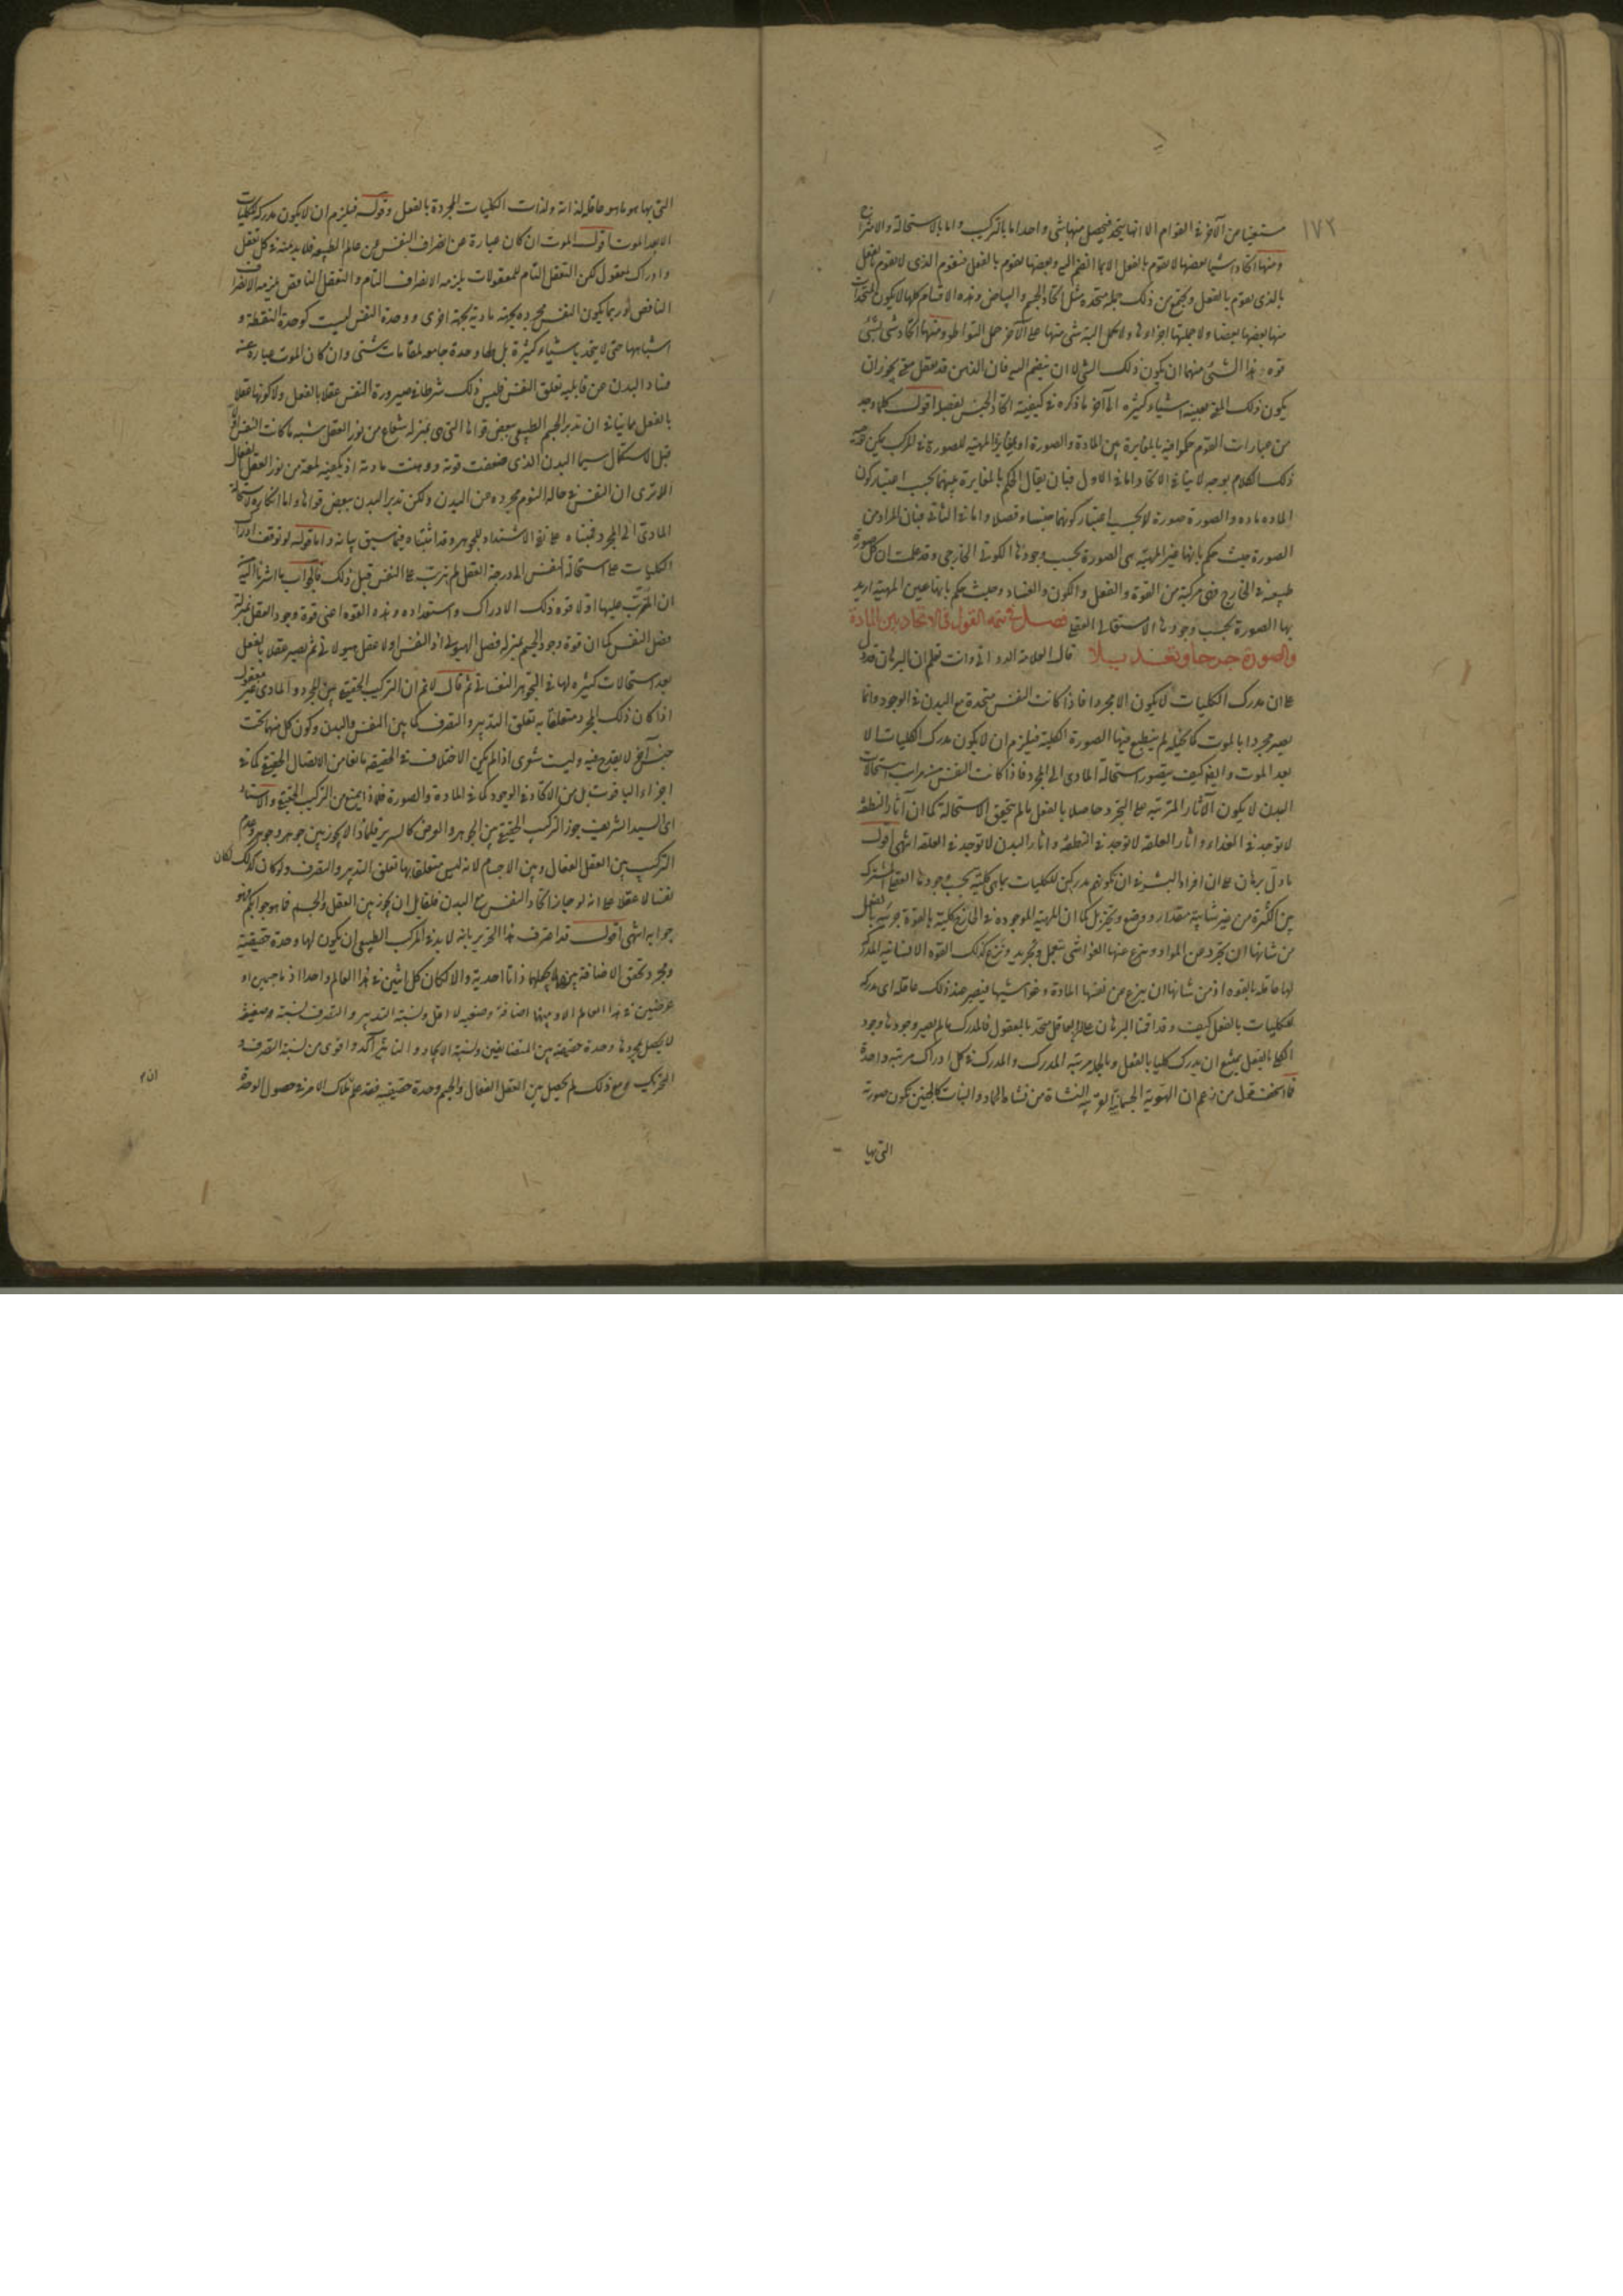 ١٧٢
مستغنيا من الآخر في القوام الا انها يتحد فيحصل منها شي واحد اما بالتركيب واما بالاستحالة والامتزاج
ومنها اتحاد اشيا بعضها لا يقوم بالفعل الا بما انضم اليه وبعضها يقوم بالفعل فيقوم الذى لا يقوم بالفعل
بالذى يقوم بالفعل ويجتمع من ذلك جملة متحدة مثل اتحاد الجسم والبياض وهذه الاقسام كلها لا يكون المتحدات
منها بعضها بعضا ولا جملتها اجزاؤها ولا يحمل البتة شى منها على الآخر حمل التواطؤ ومنها اتحاد شى بشئ
قوة هذا الشئ منهما ان يكون ذلك الشى لا ان ينضم اليه فان الذهن قد يعقل معنى يجوز ان
يكون ذلك المعنى بعينه اشياء كثيرة الى آخر ما ذكره في كيفية اتحاد الجنس بالفصل اقول كلما وجد
من عبارات القوم حكموا فيه بالمغايرة بين المادة والصورة او بمغايرة المهية للصورة في المركب يمكن
ذلك الكلام بوجه لا ينافي الاتحاد اما في الاول فبان يقال الحكم بالمغايرة بينهما بحسب اعتبار كون
المادة مادة والصورة صورة لا بحسب اعتبار كونهما جنسا وفصلا واما في الثاني فبان المراد من
الصورة حيث حكم بانها غير المهية هى الصورة بحسب وجودها الكونى الخارجى وقد علمت ان كل صورة
طبيعية في الخارج فهى مركبة من القوة والفعل والكون والفساد وحيث حكم بانها عين المهية اريد
بها الصورة بحسب وجودها الاستقلالى العقلى فصل في تتمة القول في الاتحاد بين المادة
والصورة جرحا وتعديلا قال العلامة الدوانى وانت تعلم ان البرهان قد دل
على ان مدرك الكليات لا يكون الا مجردا فاذا كانت النفس متحدة مع البدن في الوجود وانما
يصير مجردا بالموت كما تخيله لم ينطبع فيها الصورة الكلية فيلزم ان لا يكون مدرك الكليات الا
بعد الموت وايضا كيف يتصور استحالة المادى الى المجرد فاذا كانت النفس من مراتب استحالات
البدن لا يكون الآثار المترتبة على التجرد حاصلا بالفعل ما لم يتحقق الاستحالة كما ان آثار النطفة
لا توجد في الغذاء واثار العلقة لا توجد في النطفة واثار البدن لا توجد في العلقة انتهى اقول
ما دل برهان على ان افراد البشر في ان تكونهم مدركين للكليات بما هى كلية بحسب وجودها العقلى المشترك
بين الكثرة من غير شايبة مقدار ووضع وتحيز بل كما ان المهية الموجودة في الخارج كلية بالقوة جزئية بالفعل
من شانها ان تجرد عن المواد وينزع عنها الغواشى بتعمل وتجريد ونزع كذلك القوة الانسانية المدركة
لها عاقلة بالقوة اذ من شانها ان ينزع من نفسها المادة وغواشيها فيصير عند ذلك عاقلة اى مدركة
للكليات بالفعل كيف وقد اقمنا البرهان على ان العاقل متحد بالمعقول فالمدرك ما لم يصير وجوده وجود
الكلى بالفعل يمتنع ان يدرك كليا بالفعل وبالجملة مرتبة المدرك والمدرك في كل ادراك مرتبة واحدة
فما اسخف قول من زعم ان الهوية الجسمانية القريبة النشاة من نشاة الجماد والنبات كالجنين يكون صورته
التى بها
التى بها هو ما هو عاقلة لذاته ولذات الكليات المجردة بالفعل وقوله فيلزم ان لا يكون مدركة للكليات
الا بعد الموت اقول الموت ان كان عبارة عن انصراف النفس من عالم الطبيعة فلا بد منه في كل تعقل
وادراك لمعقول لكن التعقل التام للمعقولات يلزمه الانصراف التام والتعقل الناقص يلزمه الانصراف
الناقص او ربما يكون النفس مجردة بجهة مادية بجهة اخرى ووحدة النفس ليست كوحدة النقطة و
اشباهها حتى لا يتحد باشياء كثيرة بل لها وحدة جامعة لمقامات شتى وان كان الموت عبارة عن
فساد البدن عن قابلية تعلق النفس فليس ذلك شرطا في صيرورة النفس عقلا بالفعل ولا كونها عقلا
بالفعل منافيا في ان تدبر الجسم الطبيعى ببعض قواها التى هى بمنزلة شعاع من نور العقل سيما ما كانت النفس
قبل الاستكمال سيما البدن الذى ضعفت قوته ووهنت مادته اذ يكفيه لمعة من نور العقل الفعال
الا ترى ان النفس في حالة النوم مجردة من البدن ولكن تدبر البدن ببعض قواها واما انكاره لاستحالة
المادى الى المجرد فمبناه على نفى الاشتداد للجوهر وقد اثبتناه فيما سبق بيانه واما قوله لو توقف ادراك
الكليات على استحالة النفس الى درجة العقل لم يترتب على النفس قبل ذلك فالجواب ما اشرنا اليه
ان المترتب عليها اولا قوة ذلك الادراك واستعداده وهذه القوة اعنى قوة وجود العقل بمنزلة
فصل النفس كما ان قوة وجود الجسم بمنزلة فصل الهيولى اذ النفس اولا عقل هيولانى ثم يصير عقلا بالفعل
بعد استحالات كثيرة لها في التجوهر النفسانى ثم قال لا نم ان التركيب الحقيقى بين المجرد والمادى غير معقول
اذا كان ذلك المجرد متعلقا به تعلق التدبير والتصرف كما بين النفس والبدن وكون كل منهما تحت
جنس آخر لا يقدح فيه وليت شعرى اذا لم يكن الاختلاف في الحقيقة مانعا من الاتصال الحقيقى كما في
اجزاء الياقوت بل من الاتحاد في الوجود كما في المادة والصورة فلماذا يمنع من التركيب الحقيقى والاستاد
اى السيد الشريف جوز التركيب الحقيقى بين الجوهر والعرض كالسرير فلماذا لا يجوز بين جوهر وجوهر وعدم
التركيب بين العقل الفعال وبين الاجسام لانه ليس متعلقا بها تعلق التدبير والتصرف ولو كان كذلك لكان
نفسا لا عقلا على انه لو جاز اتحاد النفس مع البدن فلقايل ان يجوز بين العقل والجسم فما هو جوابكم فهو
جوابه انتهى اقول قد اعترف هذا النحرير بانه لا بد في المركب الطبيعى ان يكون لها وحدة حقيقية
ومجرد تحقق الاضافة بينهما لا يجعلهما ذاتا احدية والا لكان كل اثنين في هذا العالم واحدا اذ ما جسمين او
عرضين في هذا العالم الا وبينهما اضافة وضعية لا اقل ونسبة التدبير والتصرف نسبة ضعيفة
لا يحصل بمجردها وحدة حقيقية بين المتضايفين ونسبة الايجاد والتاثير آكد واقوى من نسبة التصرف و
التحريك ومع ذلك لم يحصل بين العقل الفعال والجسم وحدة حقيقية فقد علم ملاك الامر في حصول الوحدة